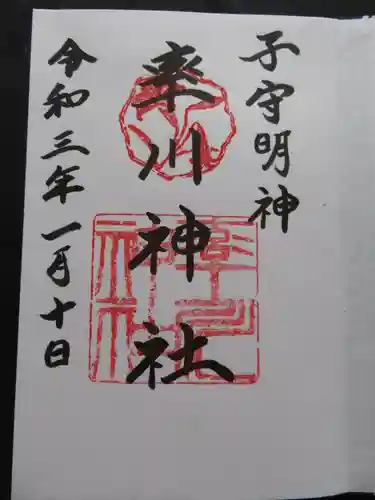 子守明神
率川神社
令和三年一月十日